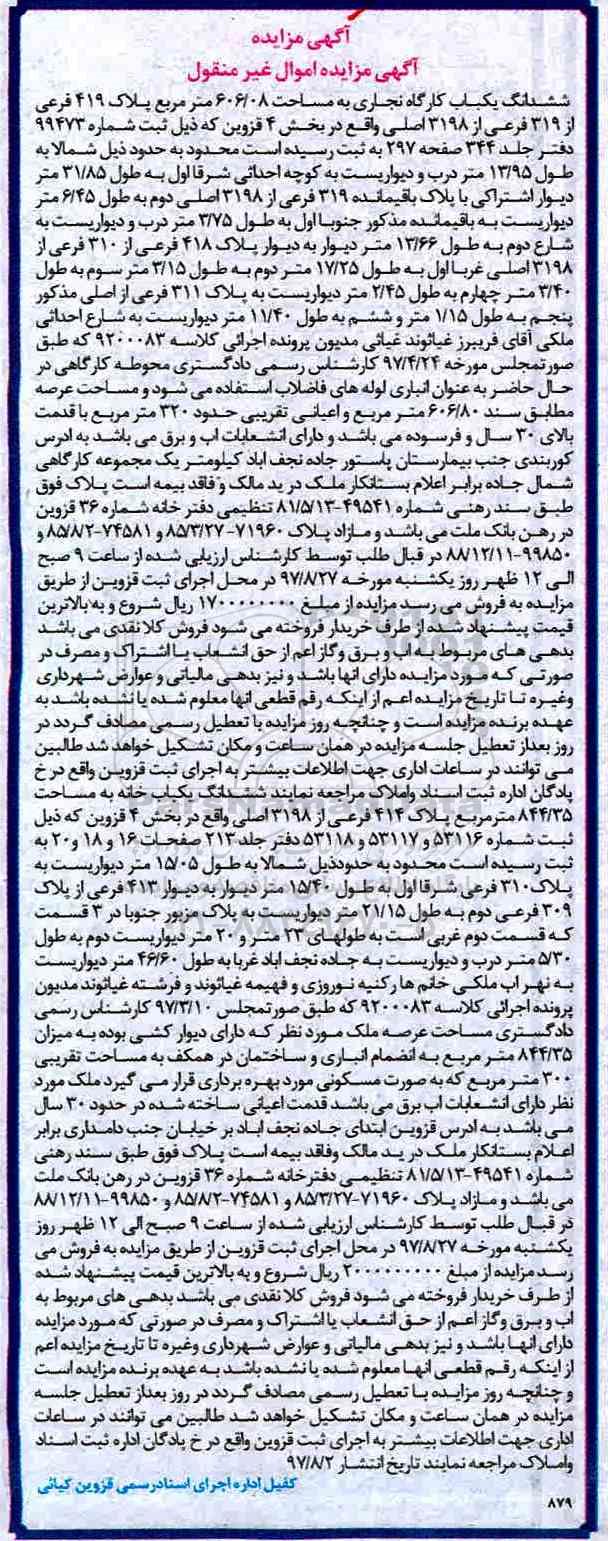 آگهی مزایده
آگهی مزایده اموال غیر منقول
ششدانگ یکباب کارگاه تجاری به مساحت ۶۰۶/۰۸ متر مربع پلاک ۴۱۹ فرعی
از ۳۱۹ فرعی از ۳۱۹۸ اصلی واقع در بخش ۴ قزوین که ذیل ثبت شماره ۹۹۴۷۳
دفتر جلد ۳۴۴ صفحه ۲۹۷ به ثبت رسیده است محدود به حدود ذیل شمالا به
طول ۱۳/۹۵ متر درب و دیواریست به کوچه احداثی شرقا اول به طول ۳۱/۸۵ متر
دیوار اشتراکی با پلاک باقیمانده ۳۱۹ فرعی از ۳۱۹۸ اصلی دوم به طول ۶/۴۵ متر
دیواریست به باقیمانده مذکور جنوبا اول به طول ۳/۷۵ متر درب و دیواریست به
شارع دوم به طول ۱۳/۶۶ متر دیوار به دیوار پلاک ۴۱۸ فرعی از ۳۱۰ فرعی از
۳۱۹۸ اصلی غربا اول به طول ۱۷/۲۵ متر دوم به طول ۳/۱۵ متر سوم به طول
۳/۴۰ متر چهارم به طول ۲/۴۵ متر دیواریست به پلاک ۳۱۱ فرعی از اصلی مذکور
پنجم به طول ۱/۱۵ متر و ششم به طول ۱۱/۴۰ متر دیواریست به شارع احداثی
ملکی آقای فریبرز غیاثوند غیاثی مدیون پرونده اجرائی کلاسه ۹۲۰۰۰۸۳ که طبق
صورتمجلس مورخه ۹۷/۴/۲۴ کارشناس رسمی دادگستری محوطه کارگاهی در
حال حاضر به عنوان انباری لوله های فاضلاب استفاده می شود و مساحت عرصه
مطابق سند ۶۰۶/۸۰ متر مربع و اعیانی تقریبی حدود ۳۲۰ متر مربع با قدمت
بالای ۳۰ سال و فرسوده می باشد و دارای انشعابات اب و برق می باشد به ادرس
کوربندی جنب بیمارستان پاستور جاده نجف اباد کیلومتر یک مجموعه کارگاهی
شمال جاده برابر اعلام بستانکار ملک در ید مالک و فاقد بیمه است پلاک فوق
طبق سند رهنی شماره ۴۹۵۴۱-۸۱/۵/۱۳ تنظیمی دفتر خانه شماره ۳۶ قزوین
در رهن بانک ملت می باشد و مازاد پلاک ۷۱۹۶۰-۸۵/۳/۲۷ و ۷۴۵۸۱-۸۵/۸/۲ و
۹۹۸۵۰-۸۸/۱۲/۱۱ در قبال طلب توسط کارشناس ارزیابی شده از ساعت ۹ صبح
الی ۱۲ ظهر روز یکشنبه مورخه ۹۷/۸/۲۷ در محل اجرای ثبت قزوین از طریق
مزایده به فروش می رسد مزایده از مبلغ ۱۷۰۰۰۰۰۰۰۰۰ ریال شروع و به بالاترین
قیمت پیشنهاد شده از طرف خریدار فروخته می شود فروش کلا نقدی می باشد
بدهی های مربوط به اب و برق و گاز اعم از حق انشعاب یا اشتراک و مصرف در
صورتی که مورد مزایده دارای انها باشد و نیز بدهی مالیاتی و عوارض شهرداری
وغیره تا تاریخ مزایده اعم از اینکه رقم قطعی انها معلوم شده یا نشده باشد به
عهده برنده مزایده است و چنانچه روز مزایده با تعطیل رسمی مصادف گردد در
روز بعداز تعطیل جلسه مزایده در همان ساعت و مکان تشکیل خواهد شد طالبین
می توانند در ساعات اداری جهت اطلاعات بیشتر به اجرای ثبت قزوین واقع در خ
پادگان اداره ثبت اسناد واملاک مراجعه نمایند ششدانگ یکباب خانه به مساحت
۸۴۴/۳۵ مترمربع پلاک ۴۱۴ فرعی از ۳۱۹۸ اصلی واقع در بخش ۴ قزوین که ذیل
ثبت شماره ۵۳۱۱۶ و ۵۳۱۱۷ و ۵۳۱۱۸ دفتر جلد ۲۱۳ صفحات ۱۶ و ۱۸ و ۲۰ به
ثبت رسیده است محدود به حدودذیل شمالا به طول ۱۵/۰۵ متر دیواریست به
پلاک ۳۱۰ فرعی شرقا اول به طول ۱۵/۴۰ متر دیوار به دیوار ۴۱۳ فرعی از پلاک
۳۰۹ فرعی دوم به طول ۲۱/۱۵ متر دیواریست به پلاک مزبور جنوبا در ۳ قسمت
که قسمت دوم غربی است به طولهای ۲۳ متر و ۲۰ متر دیواریست دوم به طول
۵/۳۰ متر درب و دیواریست به جاده نجف اباد غربا به طول ۴۶/۶۰ متر دیواریست
به نهر اب ملکی خانم ها رکنیه نوروزی و فهیمه غیاثوند و فرشته غیاثوند مدیون
پرونده اجرائی کلاسه ۹۲۰۰۰۸۳ که طبق صورتمجلس ۹۷/۳/۱۰ کارشناس رسمی
دادگستری مساحت عرصه ملک مورد نظر که دارای دیوار کشی بوده به میزان
۸۴۴/۳۵ متر مربع به انضمام انباری و ساختمان در همکف به مساحت تقریبی
۳۰۰ متر مربع که به صورت مسکونی مورد بهره برداری قرار می گیرد ملک مورد
نظر دارای انشعابات اب برق می باشد قدمت اعیانی ساخته شده در حدود ۳۰ سال
می باشد به ادرس قزوین ابتدای جاده نجف اباد بر خیابان جنب دامداری برابر
اعلام بستانکار ملک در ید مالک وفاقد بیمه است پلاک فوق طبق سند رهنی
شماره ۴۹۵۴۱-۸۱/۵/۱۳ تنظیمی دفترخانه شماره ۳۶ قزوین در رهن بانک ملت
می باشد و مازاد پلاک ۷۱۹۶۰-۸۵/۳/۲۷ و ۷۴۵۸۱-۸۵/۸/۲ و ۹۹۸۵۰-۸۸/۱۲/۱۱
در قبال طلب توسط کارشناس ارزیابی شده از ساعت ۹ صبح الی ۱۲ ظهر روز
یکشنبه مورخه ۹۷/۸/۲۷ در محل اجرای ثبت قزوین از طریق مزایده به فروش می
رسد مزایده از مبلغ ۲۰۰۰۰۰۰۰۰۰۰ ریال شروع و به بالاترین قیمت پیشنهاد شده
از طرف خریدار فروخته می شود فروش کلا نقدی می باشد بدهی های مربوط به
اب و برق وگاز اعم از حق انشعاب یا اشتراک و مصرف در صورتی که مورد مزایده
دارای انها باشد و نیز بدهی مالیاتی و عوارض شهرداری وغیره تا تاریخ مزایده اعم
از اینکه رقم قطعی انها معلوم شده یا نشده باشد به عهده برنده مزایده است
و چنانچه روز مزایده با تعطیل رسمی مصادف گردد در روز بعداز تعطیل جلسه
مزایده در همان ساعت و مکان تشکیل خواهد شد طالبین می توانند در ساعات
اداری جهت اطلاعات بیشتر به اجرای ثبت قزوین واقع در خ پادگان اداره ثبت اسناد
واملاک مراجعه نمایند تاریخ انتشار ۹۷/۸/۲
کفیل اداره اجرای اسنادرسمی قزوین کیائی
۸۷۹